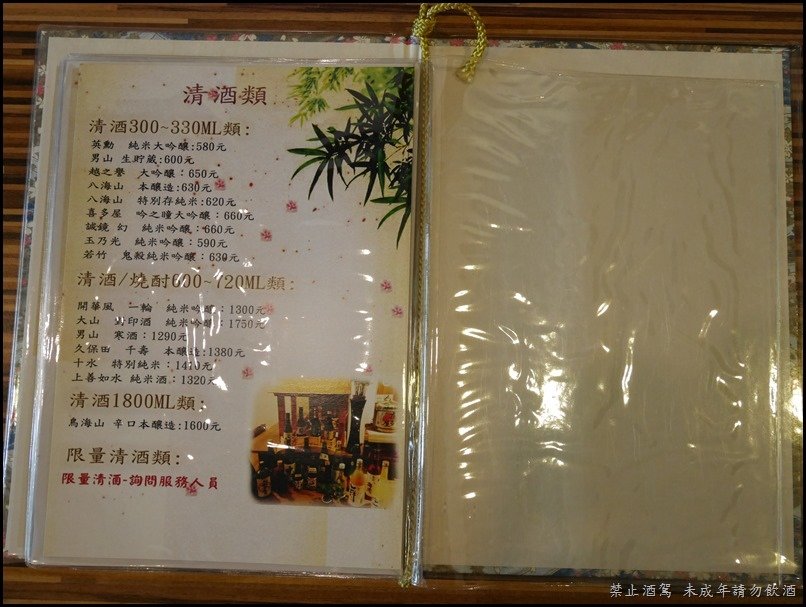 清酒類
清酒300~330ML類:
英勳 純米大吟釀:580元
男山 生貯藏:600元
越之譽 大吟釀:650元
八海山 本釀造:630元
八海山 特別存純米:620元
喜多屋 吟之瞳大吟釀:660元
誠鏡 幻 純米吟釀:660元
玉乃光 純米吟釀:590元
若竹 鬼殺純米吟釀:630元
清酒/燒酎600~720ML類:
開華風 一輪 純米吟釀:1300元
大山 封印酒 純米吟釀:1750元
男山 寒酒:1290元
久保田 千壽 本釀造:1380元
十水 特別純米:1410元
上善如水 純米酒:1320元
清酒1800ML類:
鳥海山 辛口本釀造:1600元
限量清酒類:
限量清酒-詢問服務人員
禁止酒駕 未成年請勿飲酒